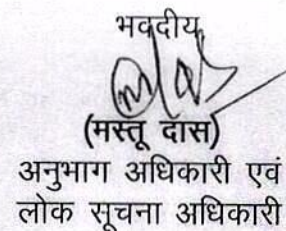 भवदीय,
(मस्तू दास)
अनुभाग अधिकारी एवं
लोक सूचना अधिकारी